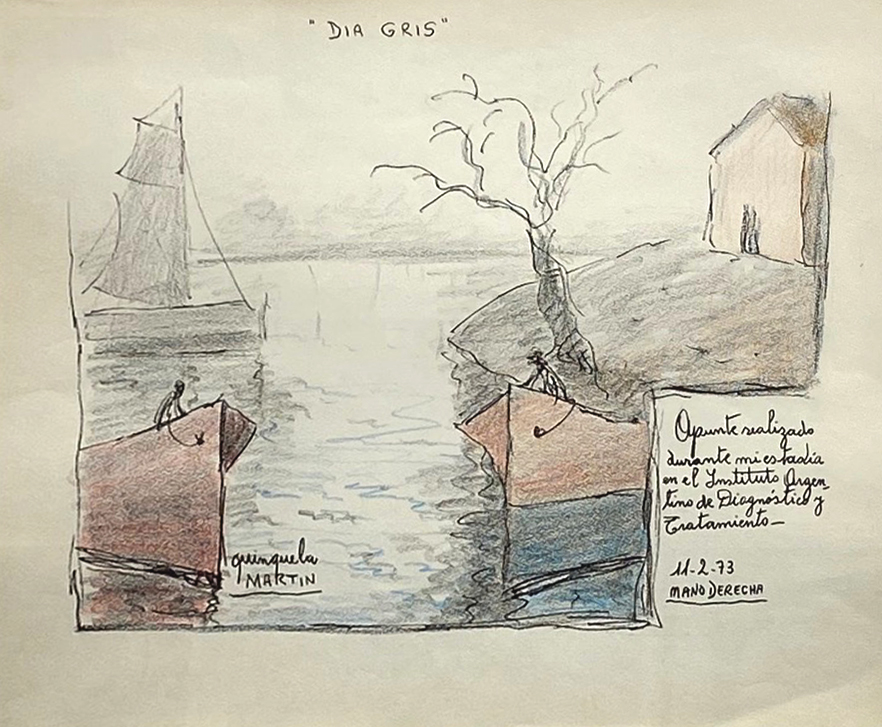 "DIA GRIS"
quinquela
MARTIN
Apunte realizado
durante mi estadía
en el Instituto Argen
tino de Diagnóstico y
Tratamiento—
11-2-73
MANO DERECHA